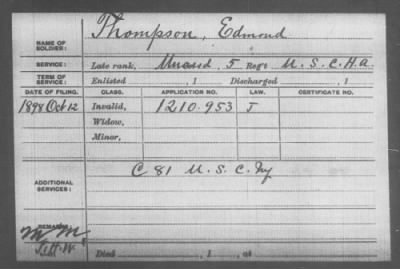 NAME OF SOLDIER: Thompson, Edmond
SERVICE: Late rank, Unassd, 5 Reg't U. S. C. H. A.
TERM OF SERVICE: Enlisted , 1 Discharged , 1
DATE OF FILING. CLASS. APPLICATION NO. LAW. CERTIFICATE NO.
1898 Oct 12 Invalid, 1210.953 J
Widow,
Minor,
ADDITIONAL SERVICES: C 81 U. S. C. Iny
REMARKS:
Died , 1 , at